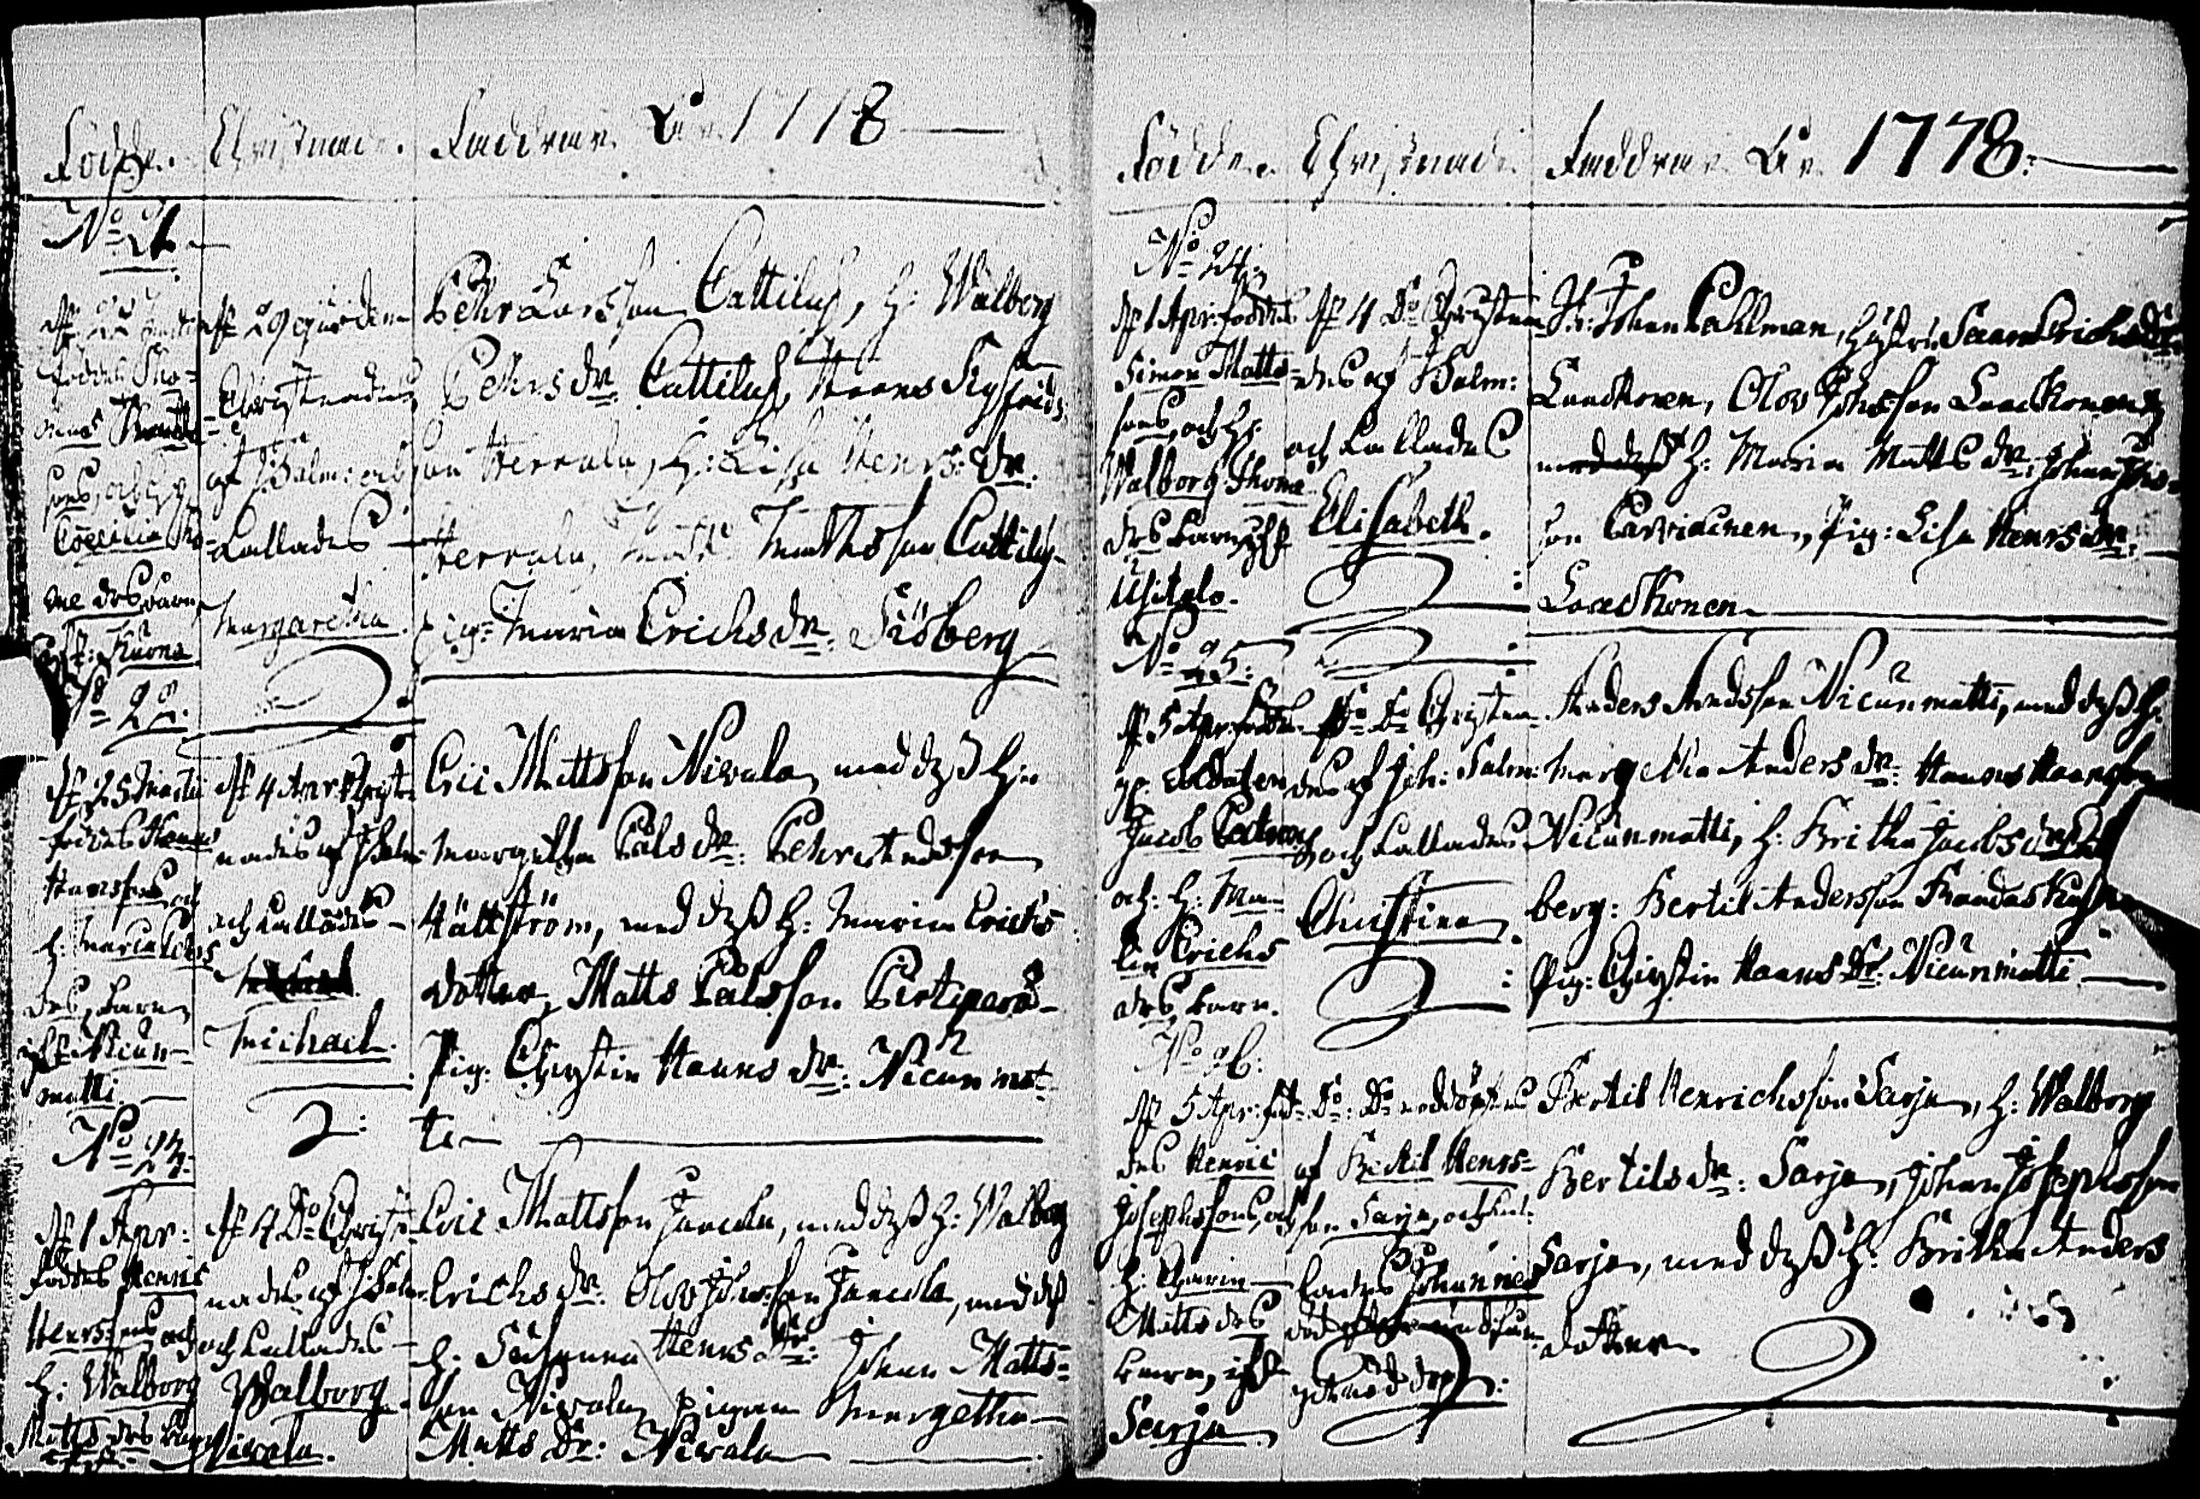 Födde. Christnade. Faddrar År 1778
No 21.
d. 22 Martii
föddes Tho-
mas Matts
sons, och H.
Cœcilia Tho-
mæ dotters barn
ifr: Kuona
d. 29 ejusdem
Christnades
af J: Salm: och
kallades
Margaretha.
Pehr Larsson Cattilus, H: Walborg
Pehrs dr. Cattilus, Hans Sigfrids
son Herrala, H: Lisa Henrs: dr:
Herrala, Matts Mattsson Cattilus
Pig: Maria Erichs dr: Siöberg
No 22.
d. 25 Martii
föddes Hans
Hanssons och
H: Maria Erichs
drs, barn
ifr Nicun-
matti.
d. 4 Apr Christ-
nades af J Salm
och kallades
Michael.
Eric Mattsson Niwala, med dess H:
Margetha Påls dr: Pehr Andersson
Hällström, med dess H: Maria Erichs
dotter, Matts Pålsson Pertiparas
Pig: Christin Hanns dr: Nicunmat-
ti
No 23.
d. 1 Apr:
föddes Henric
Henrssons och
H: Walborg
Matts drs barn
d. 4 Do Christ-
nades af J Salm
och kallades
Walborg.
Niwala.
Eric Mattsson Jaacola, med dess H: Walborg
Erichs dr: Olov Johansson Jaacola, med dess
H: Susanna Henrs dr: Johan Matts-
son Niwala, pigan Margetha
Matts dr: Niwala
Födde. Christnade. Faddrar År 1778.
No 24.
d. 1 Apr: föddes
Simon Matts-
sons, och H:
Walborg Thomæ
drs barn ifr
Usitalo.
d. 4 Do Christna-
des af J Salm:
och kallades
Elisabeth.
Hr: Johan Pahlman, Hustru Saara Erichs dr
Laackonen, Olov Johansson Laackonen
med dess H: Maria Matts dr: Johan Johans-
son Carviainen, Pig: Lisa Henrs dr:
Laackonen
No 25.
d. 5 Apr: föddes
gl: Soldaten
Jacob
och H: Ma-
lin Erichs
drs, barn.
Do Do Christna-
des af Joh: Salm:
och kallades
Christina.
Anders Andsson Nicunmatti, med dess H:
Margetha Anders dr: Hanns Hansson
Nicunmatti, H: Britha Jacobs dr
berg: Bertil Andersson
Pig: Christin Hanns dr: Nicunmatti
No 26.
d. 5 Apr: föd-
des Henric
Josephssons, och
H: Carin
Matts drs
barn, ifr
Sarja
Do: Do nöddöptes
af Bertil Henrs-
son Sarja, och kal-
lades Johannes
Bertil Henrichsson Sarja, H: Walborg
Bertils dr: Sarja, Johan Josephsson
Sarja, med dess H: Britha Anders
dotter.